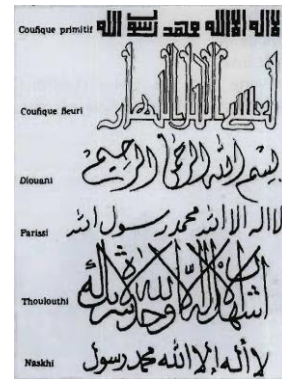 Coufique primitif لا اله الا الله محمد رسول الله
Coufique fleuri
Diouani بسم الله الرحمن الرحيم
Farissi لا اله الا الله محمد رسول الله
Thoulouthi اشهد ان لا اله الا الله وحده لا شريك له
Naskhi لا إله إلا الله محمد رسول